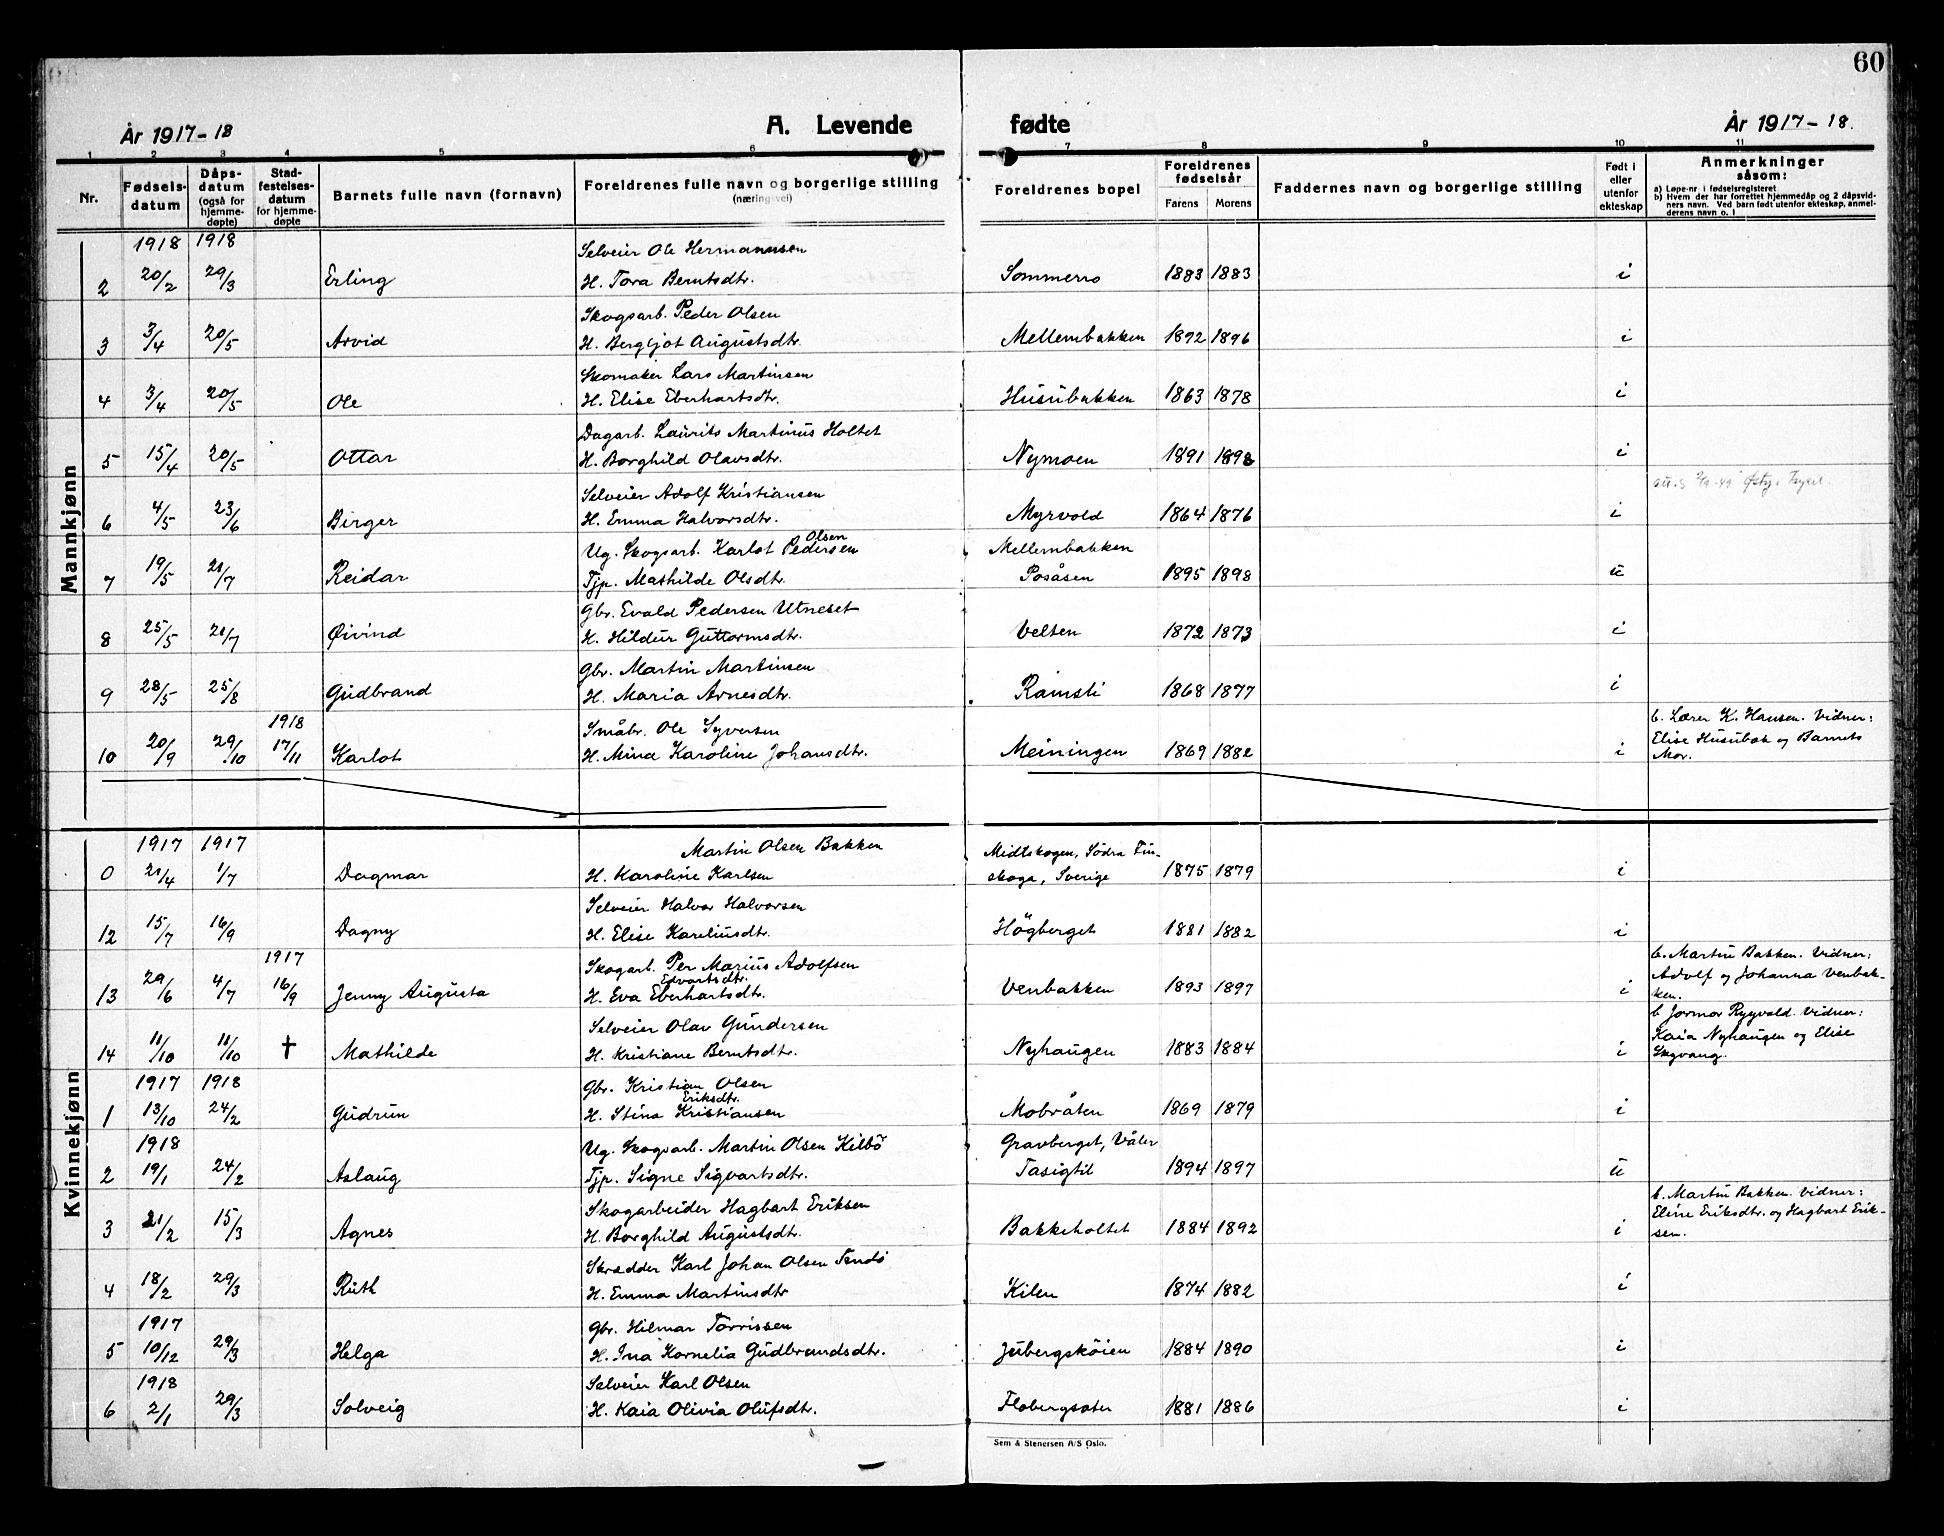 60
År 1917-18
A. Levende
fødte
År 1917-18.
1 2 3 4 5 6 7 8 9 10 11
Nr.
Fødsels-
datum
Dåps-
datum
(også for
hjemme-
døpte)
Stad-
festelses-
datum
for hjemme-
døpte
Barnets fulle navn (fornavn)
Foreldrenes fulle navn og borgerlige stilling
(næringsvei)
Foreldrenes bopel
Foreldrenes
fødselsår
Farens Morens
Faddernes navn og borgerlige stilling
Født i
eller
utenfor
ekteskap
Anmerkninger
såsom:
a) Løpe-nr. i fødselsregisteret
b) Hvem der har forrettet hjemmedåp og 2 dåpsvid-
ners navn. Ved barn født utenfor ekteskap, anmel-
derens navn o. l
Mannkjønn
1918 1918 Selveier Ole Hermannsen
2 20/2 29/3 Erling H. Tora Berntsdtr. Sommerro 1883 1883 i
Skogsarb. Peder Olsen
3 3/4 20/5 Arvid H. Bergljot Augustsdtr. Mellembakken 1892 1896 i
Skomaker Lars Martinsen
4 3/4 20/5 Ole H. Elise Eberhartsdtr. Husubakken 1863 1878 i
Dagarb. Laurits Martinus Holtet
5 15/4 20/5 Ottar H. Borghild Olavsdtr. Nymoen 1891 1898 i
Selveier Adolf Kristiansen
6 4/5 23/6 Birger H. Emma Halvorsdtr. Myrvold 1864 1876 i
Olsen
Ug. Skogsarb. Karlot Pedersen Mellembakken
7 19/5 21/7 Reidar Tjp. Mathilde Olsdtr. Posåsen 1895 1898 u
Gbr. Evald Pedersen Utneset
8 25/5 21/7 Øivind H. Hildur Guttormsdtr. Velten 1872 1873 i
Gbr. Martin Martinsen
9 28/5 25/8 Gudbrand H. Maria Arnesdtr. Ramsli 1868 1877 i
1918 Småbr. Ole Syversen b. Lærer K. Hansen. Vidner:
10 20/9 29/10 17/11 Karlot H. Mina Karoline Johansdtr. Meiningen 1869 1882 i Elise Husubak og Barnets
Mor.
Kvinnekjønn
1917 1917 Martin Olsen Bakken Midtskogen, Södra Fin-
0 21/4 1/7 Dagmar H. Karoline Karlsen skoga, Sverige 1875 1879 i
Selveier Halvor Halvorsen
12 15/7 16/9 Dagny H. Elise Kareliusdtr. Högberget 1881 1882 i
1917 Skogarb. Per Marius Adolfsen b. Martin Bakken. Vidner:
Edvartsdtr. Adolf og Johanna Venbak-
13 29/6 4/7 16/9 Jenny Augusta H. Eva Eberhartsdtr. Venbakken 1893 1897 i ken.
Selveier Olav Gundersen b Jormor Rygvold. Vidner:
14 11/10 11/10 † Mathilde H. Kristiane Berntsdtr. Nyhaugen 1883 1884 i Kaia Nyhaugen og Elise
Skyvang.
1917 1918 Gbr. Kristian Olsen
Eriksdtr.
1 13/10 24/2 Gudrun H. Stina Kristiansen Mobråten 1869 1879 i
1918 Ug. Skogsarb. Martin Olsen Kilbö Gravberget, Våler
2 19/1 24/2 Aslaug Tjp. Signe Sigvartsdtr. Tasigtil 1894 1897 u
Skogarbeider Hagbart Eriksen b. Martin Bakken. Vidner:
3 21/2 15/3 Agnes H. Borghild Augustsdtr. Bakkeholtet 1884 1892 i Eline Eriksdtr. og Hagbart Erik-
sen.
Skrædder Karl Johan Olsen
4 18/2 29/3 Ruth H. Emma Martinsdtr Kilen 1874 1882 i
1917 Gbr. Hilmar Torrissen
5 10/12 29/3 Helga H. Ina Kornelia Gudbrandsdtr. Jubergsköien 1884 1890 i
1918 Selveier Karl Olsen
6 2/1 29/3 Solveig H. Kaia Olivia Olufsdtr. Flobergsæter 1881 1886 i
Sem & Stenersen A/S Oslo.